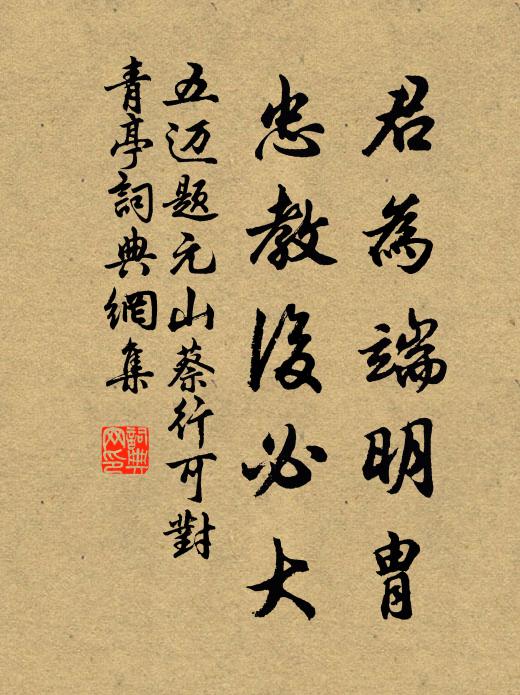 君為端明胄
忠教後必大
五迈题元山蔡行可對青亭
詞典網集
詞典网印